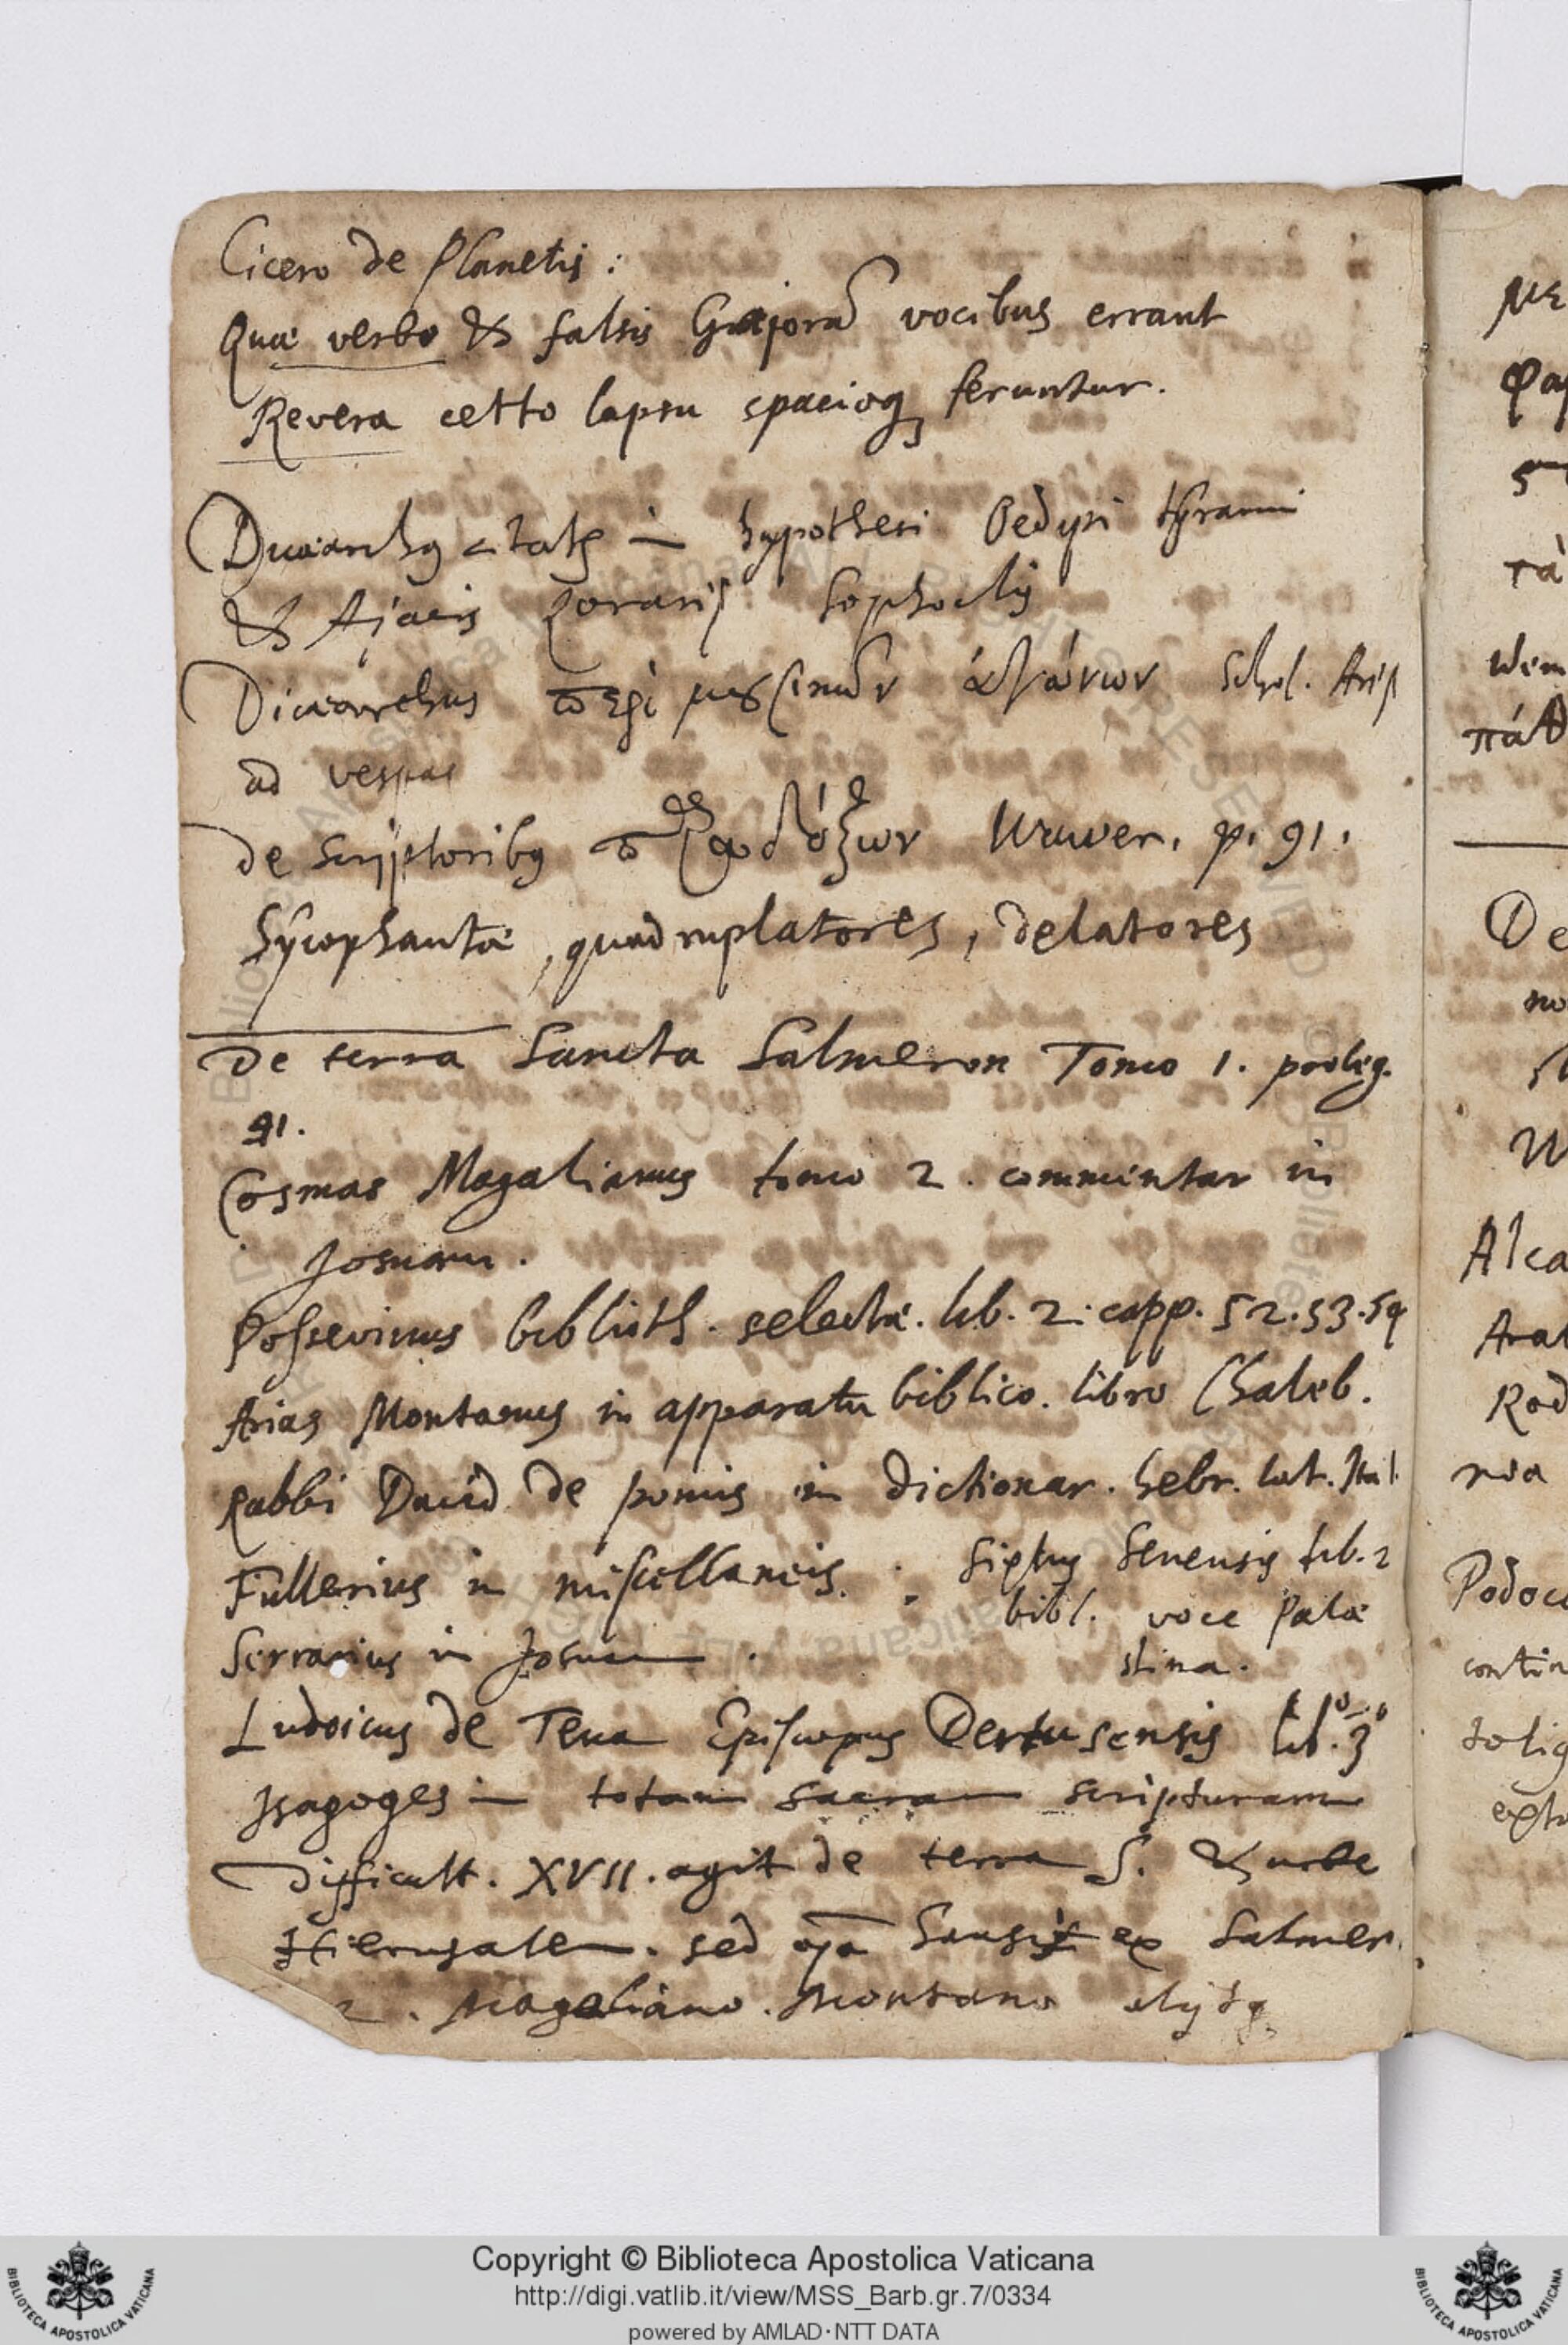 Cicero de Planetis:
Quæ verbo & falsis Grajorũ vocibus errant
Revera certo lapsu spacioq; feruntur.
Dicæarchq citatq in hypothesi Oedypi tyranni
& Ajacis Lorarij Sophoclis
Dicæarchus περὶ μουσικῶν ἀγώνων Schol. Arist
ad vespas
de scriptoribq παραδόξων Wower. p. 91.
Sycophantæ, quadruplatores, delatores
De terra Sancta Salmeron Tomo 1. proleg.
91.
Cosmas Magalianus tomo 2. commentar in
Josuam.
Possevinus biblioth. selectæ. lib. 2. capp. 52.53.54
Arias Montanus in apparatu biblico. libro Chaleb.
Rabbi David de pomis in dictionar. hebr. lat. Ital.
Fullerius in miscellaneis. Sixtus Senensis lib. 2
bibl. voce Palæ
stina.
Serrarius in Josuam.
Ludoicus de Tena Episcopus Dertusensis lib. 3º
Isagoges in totam sacram scripturam
Difficult. XVII. agit de terra S. & urbe
Hierusalem. sed oĩa hausit ex Salmer.
Magaliano. Montano alijsq;
με
φαρ
τὰ
Idem
πάθ
De
no
Alca
Arat
Rod
Podoc
contin
Copyright © Biblioteca Apostolica Vaticana
http://digi.vatlib.it/view/MSS_Barb.gr.7/0334
powered by AMLAD·NTT DATA
BIBLIOTECA APOSTOLICA VATICANA
BIBLIOTECA APOSTOLICA VATICANA